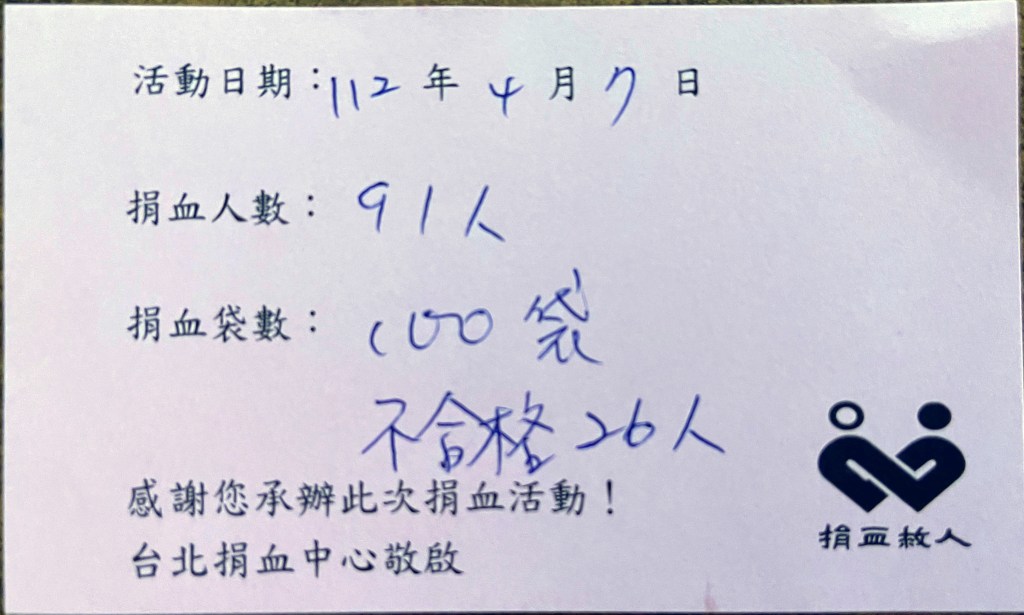 活動日期：112 年 4 月 7 日
捐血人數： 91人
捐血袋數： 100 袋
不合格 26人
感謝您承辦此次捐血活動！
台北捐血中心敬啟
捐血救人